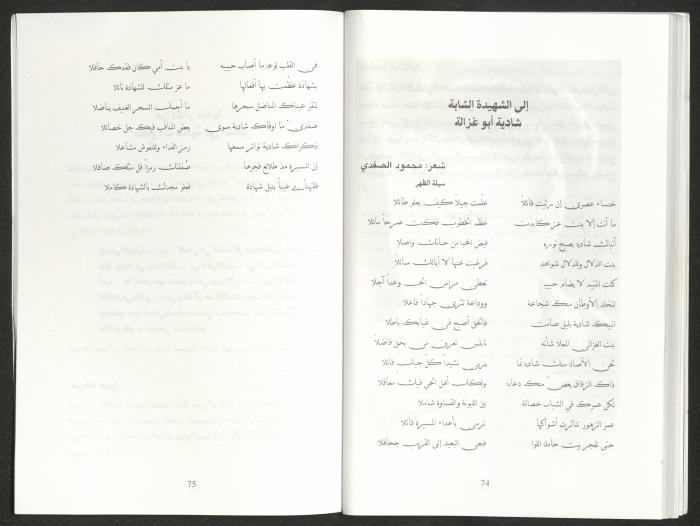 إلى الشهيدة الشابة
شادية أبو غزالة
شعر: محمود الصفدي
سيلة الظهر
خنساء عصري إن رثيت فاتلا علمت جيلاً كيف يعلو طائلا
ما أنت إلا بنت عز كابدت عظم الخطوب فكنت صرحاً ماثلا
شادية بصبح نوره فيض المجد من حنانك واصلا
بنت الدلال وللدلال شواهد فرغبت عنها لا أبالك سائلا
كنت المتيم لا يضام حبيبه تعطي مراس الحب وعداً آجلا
لتخلد الأوطان منك شجاعة ووداعة تثري جهاداً فاعلا
أبكيك شادية بليل صامت فالحق أصبح في غيابك باطلا
بنت الغزالي المعلا شأنه نابلس تعرف من يحق فاضلاً
نحن الأصالة منك شادية نما نشيداً كل جيلك قائلا
ذاك الزقاق يغص منك دعابة ولكل أهل الحي فيك معاقلا
لكل عمرك في الشباب خصالة بين الليونة والقساوة شاملا
عمر الزهور تناثرت أشواكها ترمي بأعداء المسيرة قاتلا
حتى تفجر بيت حامله اللوا فنعى البعيد إلى القريب جحافلا
74
في القلب لوعة ما أصاب حبيبه يا بنت أمي كان فقدك حافلا
بشهادة عظمت بها أفعالها ما عز مثلك للشهادة نائلا
عيناك المناضل سحرها ما أجمل السحر العنيف يناضلا
صفدي ما أوفاك شادية سوى بعض المناقب فيك جل خصائلا
ذكراك شادية تواتر سمعها رمز الفداء وللنفوس مشاعلا
إن المسيرة مذ طلائع فجرها صقلتك رمزاً قل مثلك صاقلا
فلتهنأي عيناً بنيل شهادة فعلو مجدك بالشهادة كاملا
75